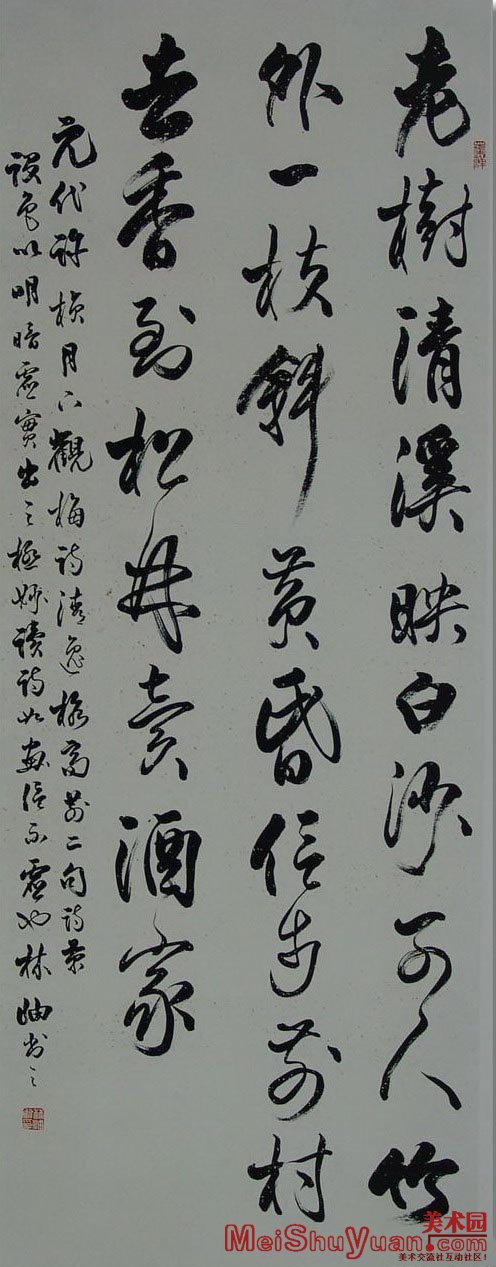 老樹清溪映白沙可人竹
外一枝斜黄昏信步前村
去香到松賣酒家
元代許楨月下觀梅詩清逸格高前二句詩景
設色以明暗虛實出之極妙讀詩如畫信不虛也林岫書之
美术园
MeiShuYuan.com
美术交流社互动社区!